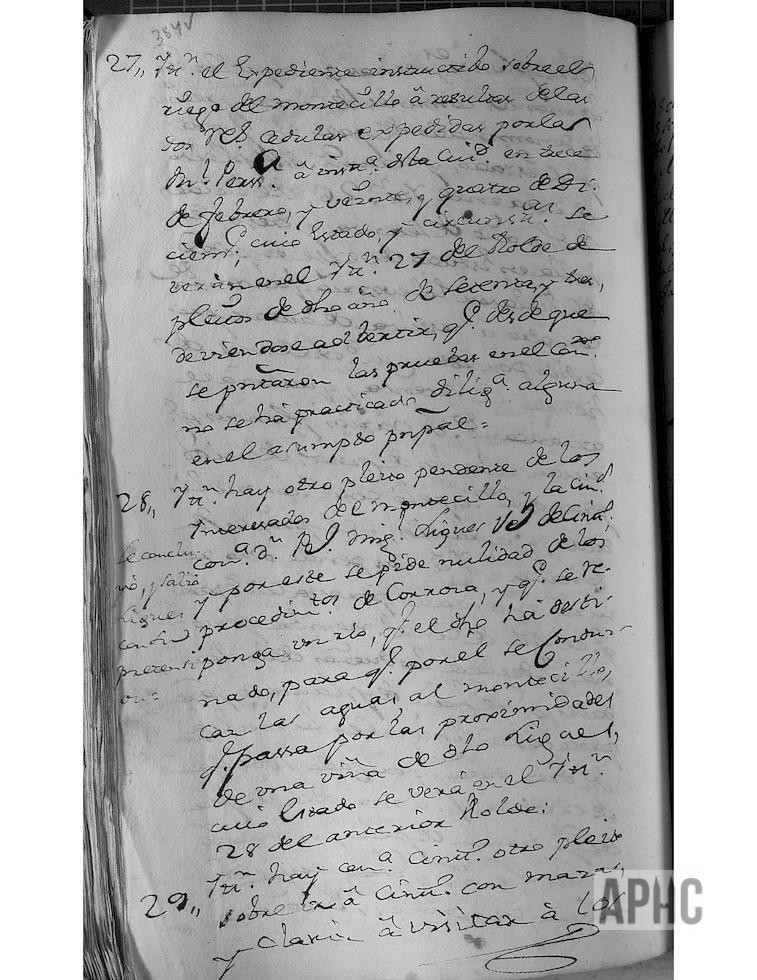 384v
27,, Ytn. el Expediente instruido sobre el
riego del montecillo â resultas de las
dos Rs. cedulas expedidas por las
â inst.ª de la ciud. en trece
de febrero, y veinte, y quatro de
cuio estado, y circunst.as se
verán en el Ytn. 27 del Rolde de
pleitos de dho año de setenta, y tres,
deviendose advertir, q.e desde que
se pntaron las pruebas en el Con.
no se há practicado dilig.ª alguna
en el asumpto pnpal=
28,, Ytn. hay otro pleito pendiente de los
Ynteresados del montecillo, y la ciud.
con.ª Dn. Mig.l Liques
y por este se pide nulidad de los
procedim.tos de Corrora, y q.e se re-
ponga un rio, q.e el dho há desti-
nado, para q.e por el se Conduz-
can las aguas al montecillo,
q.e passa por las proximidades
de una viña de dho Liques,
cuio estado se verá en el Ytn.
28 del anterior Rolde:
Se conclu-
yó, y salió
Liques
con su
pretensi-
on=
29,, Ytn. hay con.ª Cintl. otro pleito
sobre â Cintl. con
y â visitar â los
APHC